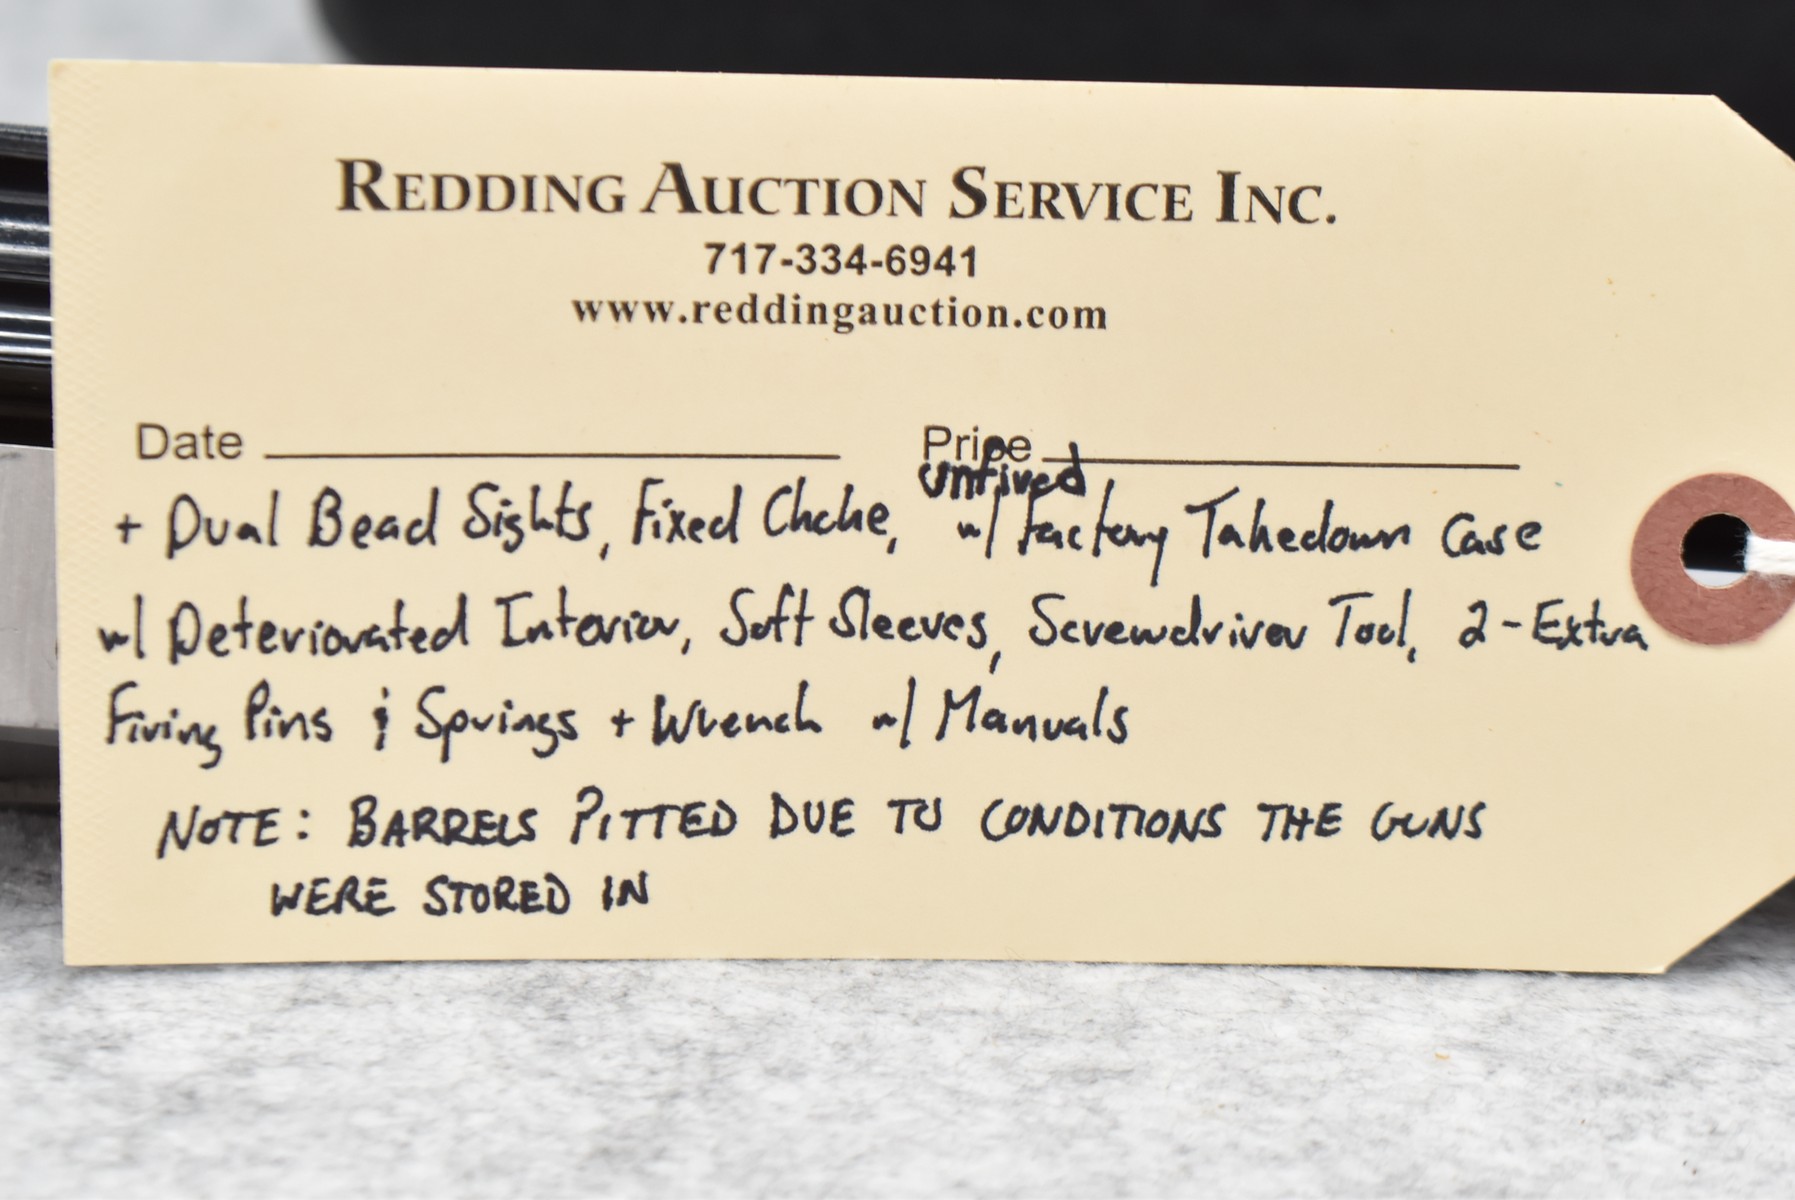 REDDING AUCTION SERVICE INC.
717-334-6941
www.reddingauction.com
Date Price
unfired
+ Dual Bead Sights, Fixed Choke, w/ Factory Takedown Case
w/ Deteriorated Interior, Soft Sleeves, Screwdriver Tool, 2-Extra
Firing Pins & Springs + Wrench w/ Manuals
NOTE: BARRELS PITTED DUE TO CONDITIONS THE GUNS
WERE STORED IN